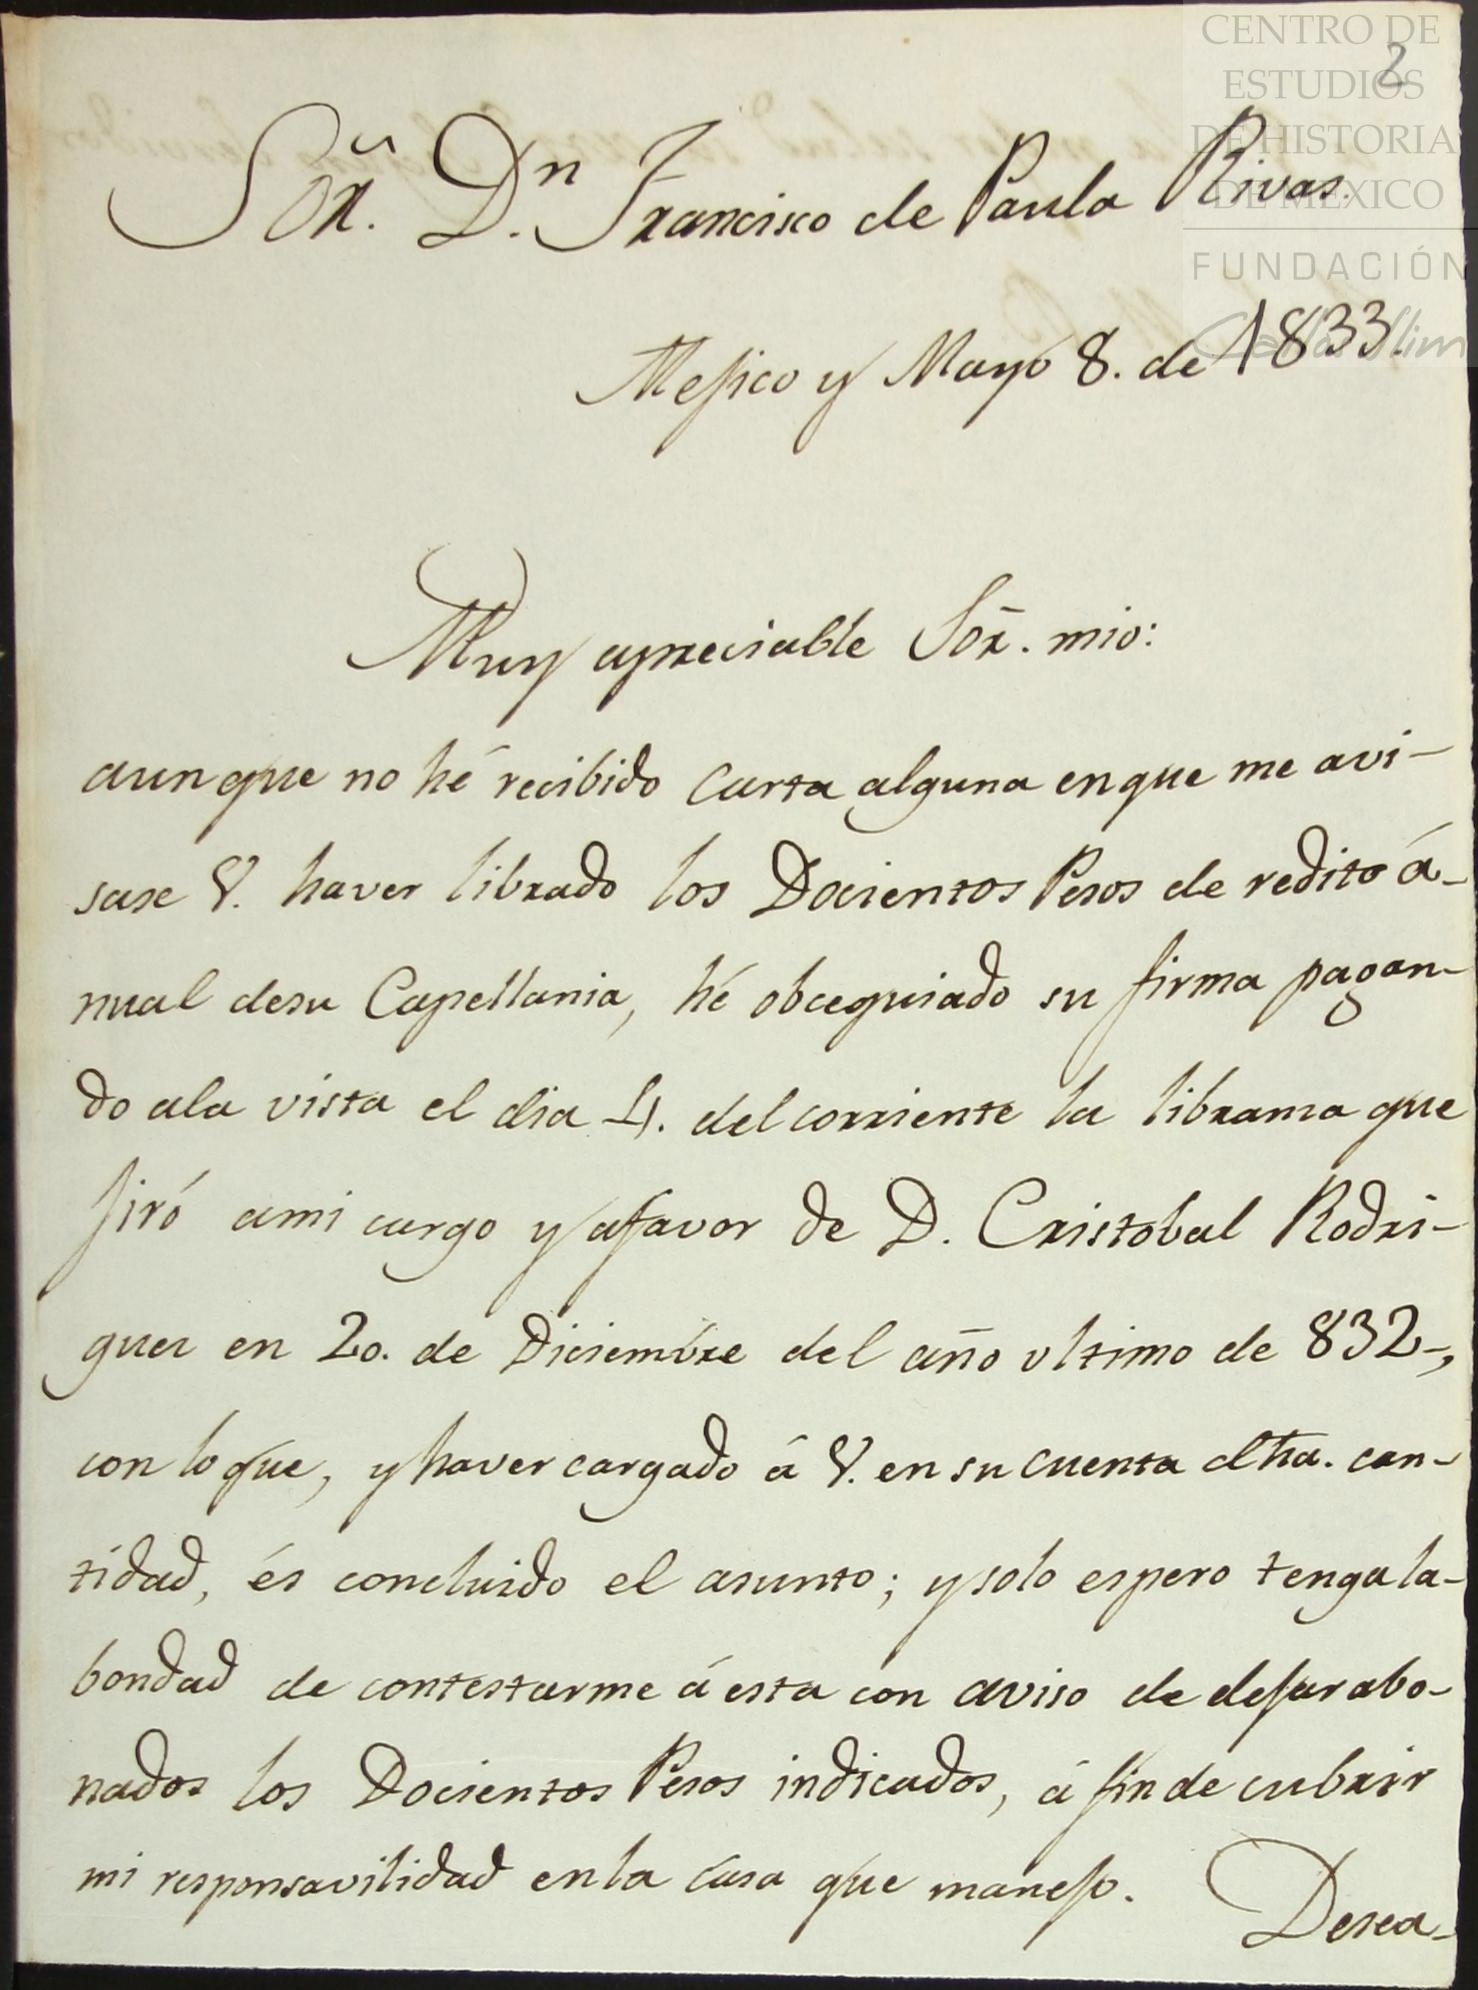 CENTRO DE
ESTUDIOS
DE HISTORIA
DE MÉXICO
FUNDACIÓN
Carlos Slim
2
Soñr. Dn. Francisco de Paula Rivas.
Mejico y Mayo 8. de 1833.
Muy apreciable Soñr. mio:
aunque no hé recibido carta alguna enque me avi-
sase V. haver librado los Docientos Pesos de redito á-
nual desu Capellania, hé obcequiado su firma pagan-
do ala vista el dia 4. del corriente la libransa que
jiró ami cargo y afavor de D. Cristobal Rodri-
guez en 20. de Diciembre del año ultimo de 832-,
con loque, y haver cargado á V. en su cuenta dha. can-
tidad, és concluido el asunto; y solo espero tenga la-
bondad de contestarme á esta con aviso de dejar abo-
nados los Docientos Pesos indicados, á finde cubrir
mi responsavilidad enla casa que manejo.
Desea-